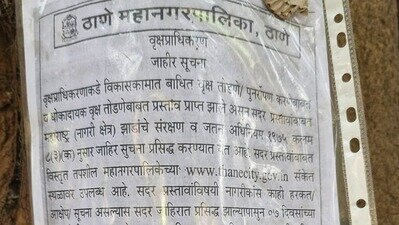 ठाणे महानगरपालिका, ठाणे
वृक्षप्राधिकरण
जाहीर सूचना
वृक्षप्राधिकरणाकडे विकासकामात बाधित वृक्ष तोडणे/ पुनरोपण करणेबाबत
धोकादायक वृक्ष तोडणेबाबत प्रस्ताव प्राप्त झाले असून सदर प्रस्तावांबाबत
महाराष्ट्र (नागरी क्षेत्र) झाडांचे संरक्षण व जतन अधिनियम १९७५ कलम
८(३)(क) नुसार जाहिर सूचना प्रसिद्ध करण्यात येत आहे. सदर प्रस्तावांबाबत
विस्तृत तपशील महानगरपालिकेच्या www.thanecity.gov.in संकेत
स्थळावर उपलब्ध आहे. सदर प्रस्तावांविषयी नागरीकांस काही हरकत/
आक्षेप/ सूचना असल्यास सदर जाहिरात प्रसिद्ध झाल्यापासून ०७ दिवसांच्या